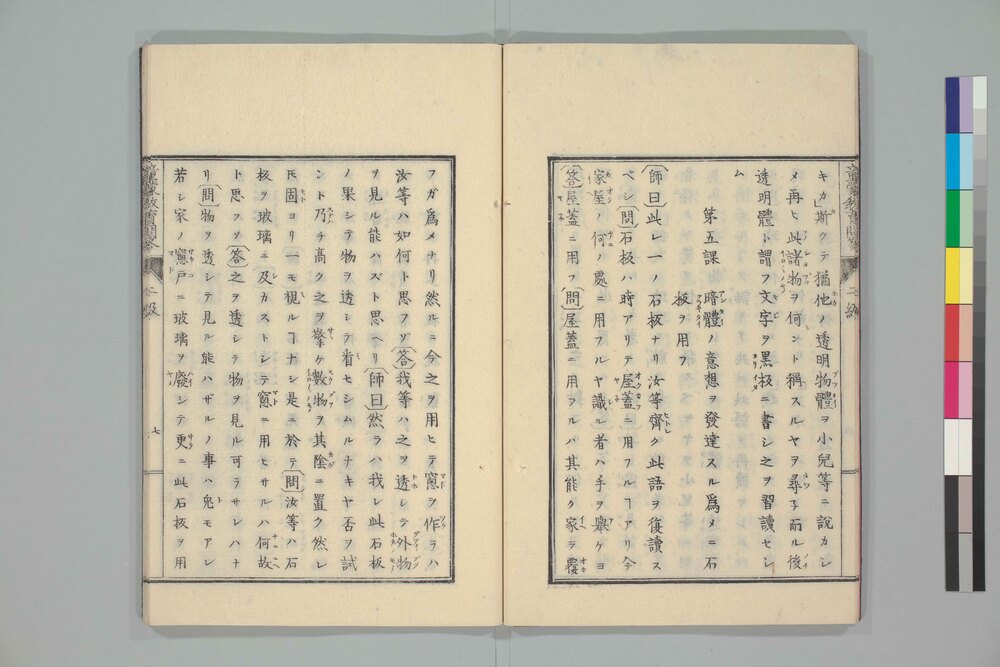 キカ」斯クテ猶他ノ透明物體ヲ小兒等ニ説カシ
メ再ヒ此諸物ヲ何ント稱スルヤヲ尋子而ル後
透明體ト謂フ文字ヲ黒板ニ書シ之ヲ習讀セシ
ム
第五課 暗體ノ意想ヲ發達スル爲メニ石
板ヲ用フ
師曰此レ一ノ石板ナリ汝等齊ク此語ヲ復讀ス
ベシ問石板ハ時アリテ屋蓋ニ用フルヿアリ今
家屋ノ何ノ處ニ用フルヤ識ル者ハ手ヲ擧ケヨ
答屋蓋ニ用フ問屋蓋ニ用フルハ其能ク家ヲ覆
フガ爲メナリ然ルニ今之ヲ用ヒテ窓ヲ作ラハ
汝等ハ如何ト思フゾ答我等ハ之ヲ透シテ外物
ヲ見ル能ハズト思ヘリ師曰然ラハ我レ此石板
ノ果シテ物ヲ透シテ看セシムルナキヤ否ヲ試
ント乃チ高ク之ヲ擎ケ數物ヲ其陰ニ置ク然レ
𪜈固ヨリ一モ視ルヿナシ是ニ於テ問汝等ハ石
板ヲ玻璃ニ及カストシテ窓ニ用ヒサルハ何故
ト思フゾ答之ヲ透シテ物ヲ見ル可ラサレハナ
リ問物ヲ透シテ見ル能ハザルノ事ハ兎モアレ
若シ家ノ窓戸ニ玻璃ヲ廢シテ更ニ此石板ヲ用
七